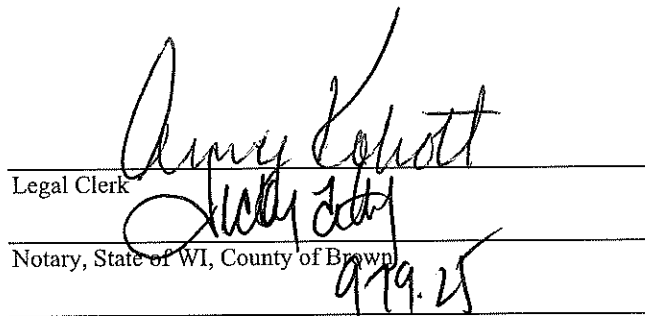 Amy Kokott
Legal Clerk
Vicky Felty
Notary, State of WI, County of Brown
9.19.25